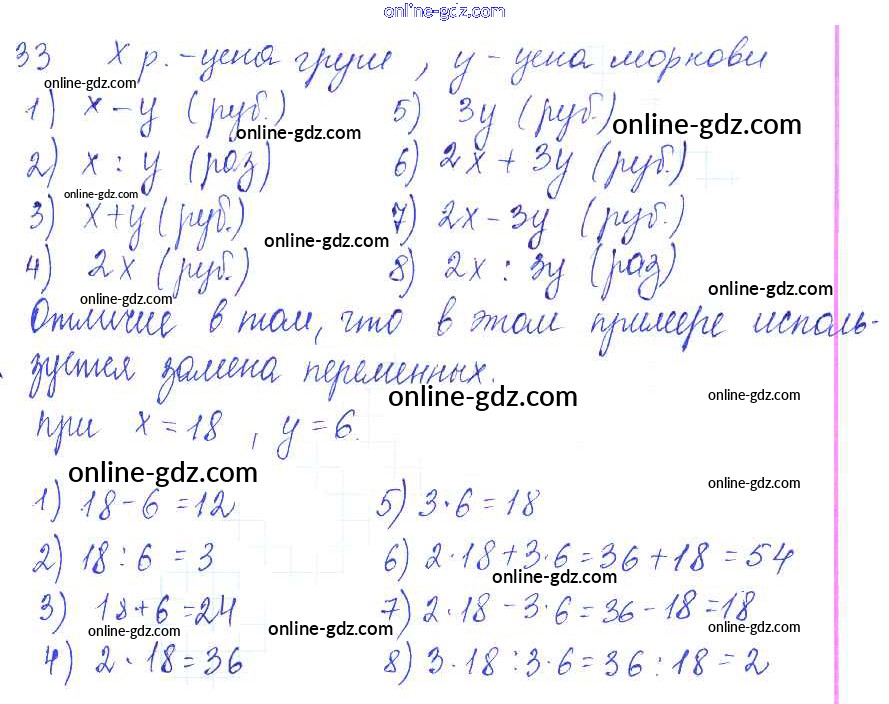 online-gdz.com
33 х р. - цена груш, у - цена моркови
online-gdz.com
1) х - у (руб.) 5) 3у (руб.)
online-gdz.com online-gdz.com
2) х : у (раз) 6) 2х + 3у (руб.)
online-gdz.com
3) х + у (руб.) 7) 2х - 3у (руб.)
online-gdz.com
4) 2х (руб.) 8) 2х : 3у (раз)
online-gdz.com online-gdz.com
Отличие в том, что в этом примере исполь-
зуется замена переменных.
online-gdz.com online-gdz.com
при х = 18, у = 6.
online-gdz.com online-gdz.com
1) 18 - 6 = 12 5) 3 · 6 = 18
2) 18 : 6 = 3 6) 2 · 18 + 3 · 6 = 36 + 18 = 54
online-gdz.com
3) 18 + 6 = 24 7) 2 · 18 - 3 · 6 = 36 - 18 = 18
online-gdz.com online-gdz.com online-gdz.com
4) 2 · 18 = 36 8) 3 · 18 : 3 · 6 = 36 : 18 = 2